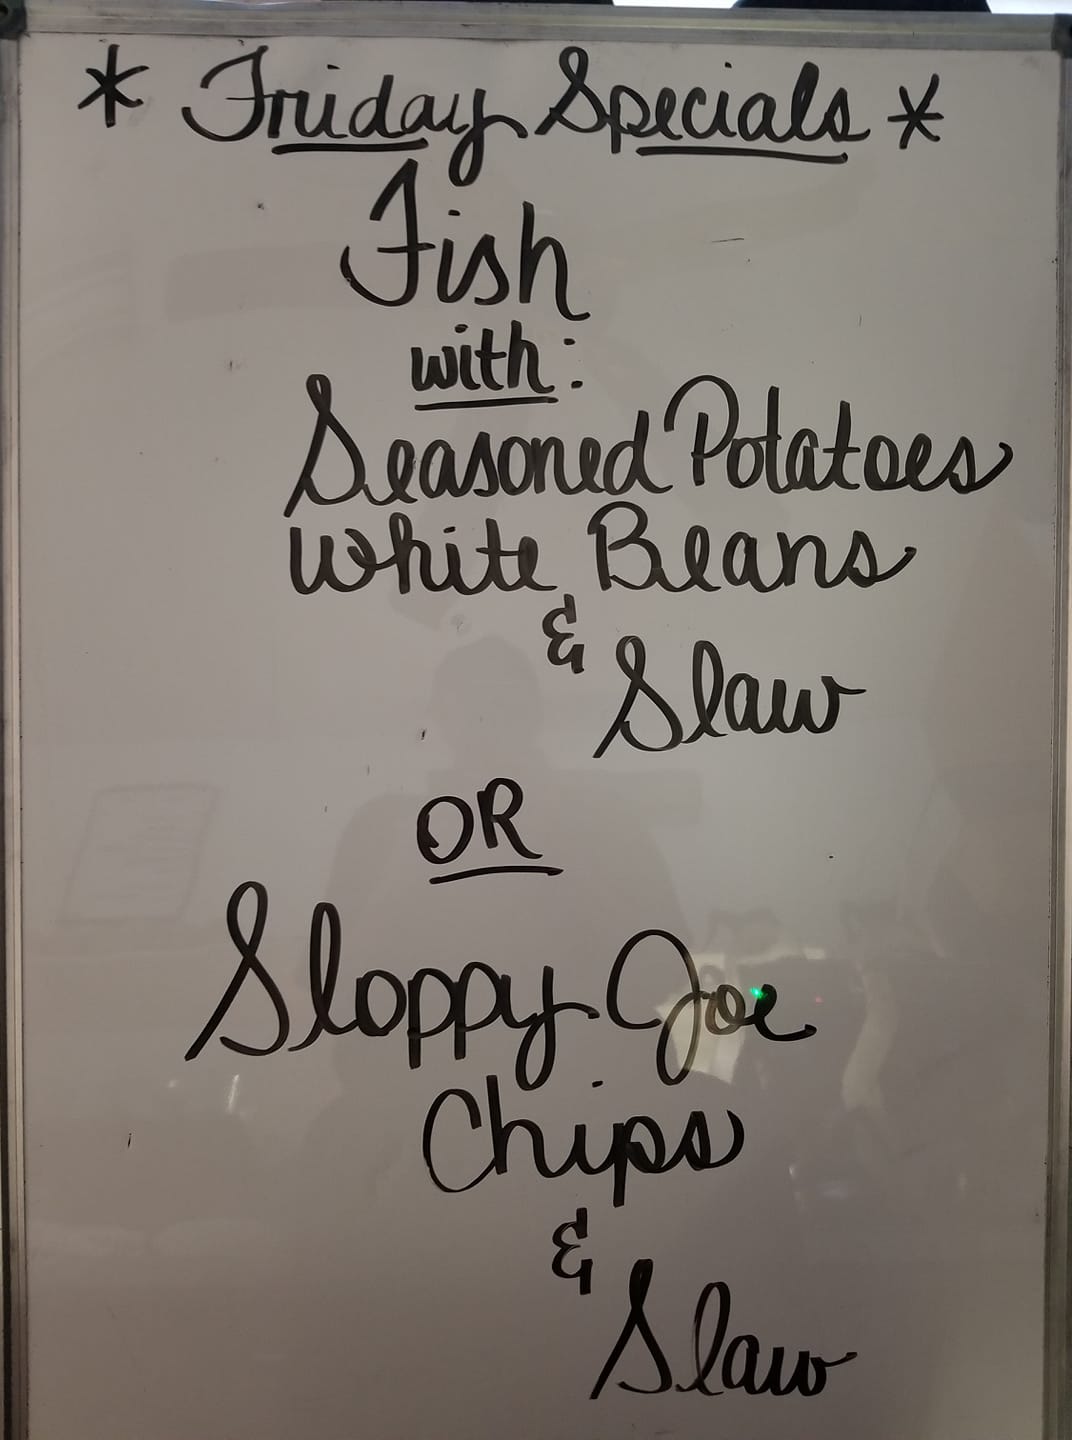 * Friday Specials *
Fish
with:
Seasoned Potatoes
White Beans
&
Slaw
OR
Sloppy Joe
Chips
&
Slaw